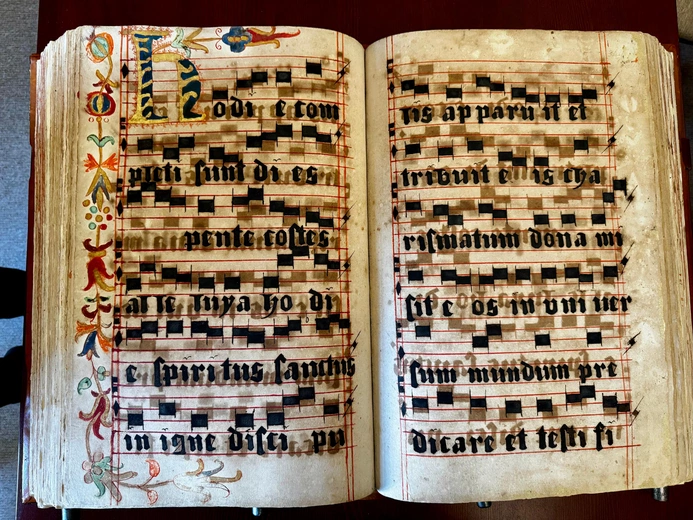 Hodi e com
pleti sunt di es
pente costes
al le luya ho di
e spiri tus sanctus
in igne disci pu
lis ap paru it et
tribuit e is cha
rismatum dona mi
sit e os in vni uer
sum mundum pre
dicare et testi fi